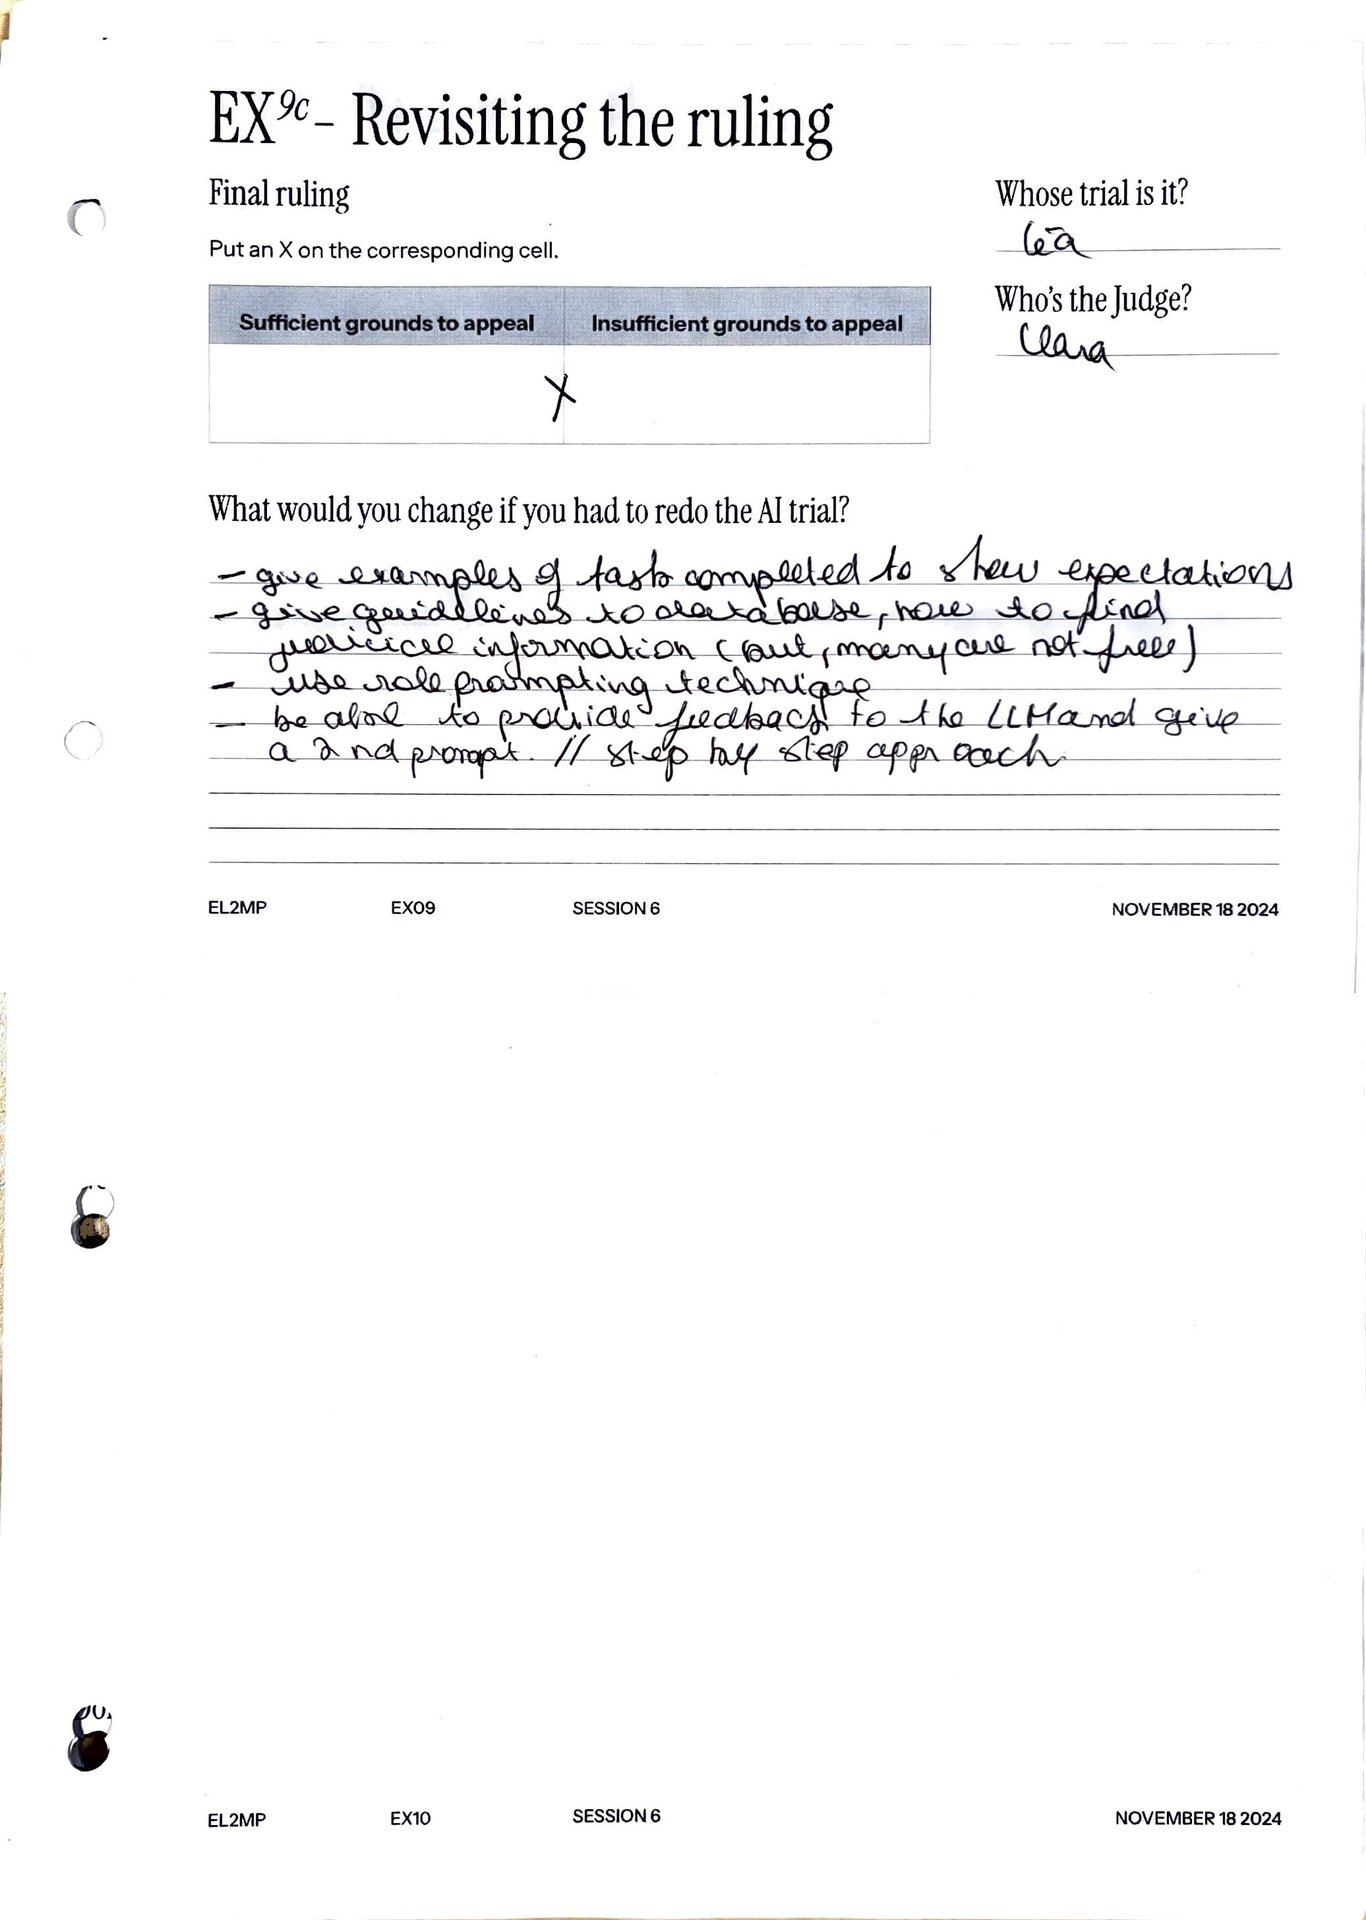 EX9c – Revisiting the ruling
Final ruling
Put an X on the corresponding cell.
Whose trial is it?
Léa
Who's the Judge?
Clara
Sufficient grounds to appeal Insufficient grounds to appeal
X
What would you change if you had to redo the AI trial?
– give examples of task completed to show expectations
– give guidelines to database, how to find
judicial information (but, many are not free)
– use role prompting technique
– be able to provide feedback to the LLM and give
a 2nd prompt. // step by step approach.
EL2MP EX09 SESSION 6 NOVEMBER 18 2024
EL2MP EX10 SESSION 6 NOVEMBER 18 2024